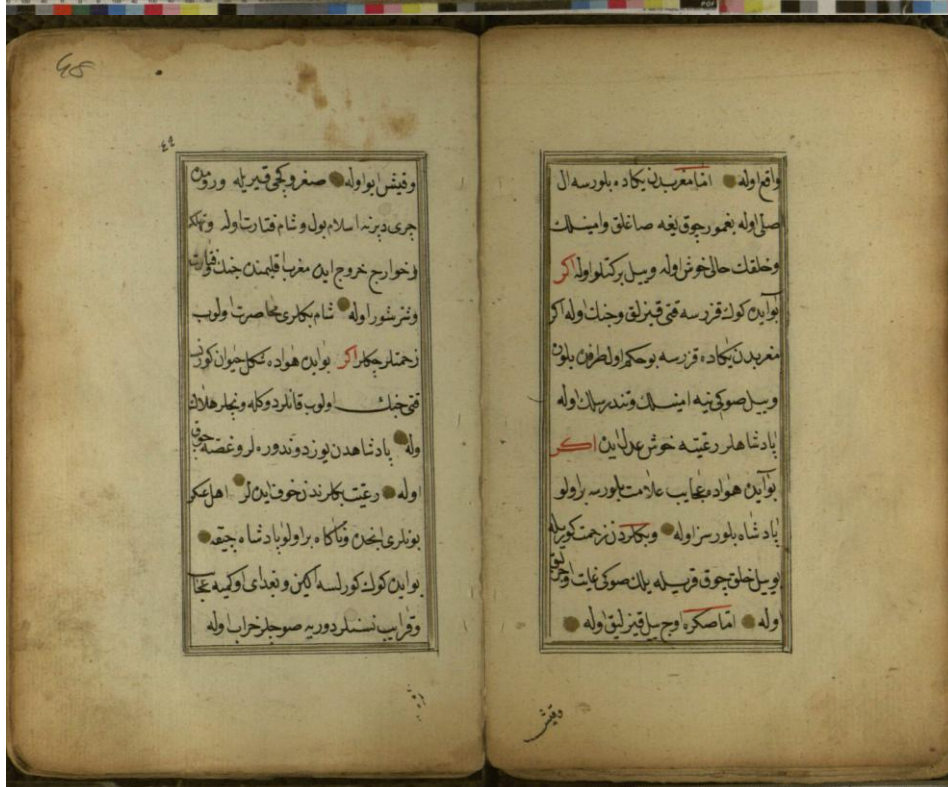 واقع اوله اما مغربدن یکاده بلورسه ال
صلی اوله یغمور چوق یغه صاغلق وامینلك
وخلقك حالی خوش اوله ویيل برکتلو اوله اکر
بو آیده کوك قزرسه قتی قیزلق وجنك اوله اکر
مغربدن یکاده قزرسه بو حکم اول طرفده بلون
ویيل صوکی نیه امینلك وتندرسلك اوله
پادشاهلر رعیته خوش عدل ایده اکر
بو آیده هواده عجایب علامت بلورسه بر اولو
پادشاه بلورسز اوله وبکلردن زحمت کوریله
بو ییل خلق چوق قریله ییلك صوکی غایت اوجزلق
اوله اما صکره اوچ ییل قیزلیق اوله
وقیش
٤٩
وقیش ایو اوله صغر وکچی قیریله وروم
چری دیرنه اسلامبول وشام فتارت اوله
خوارج خروج ایده مغرب اقلیمنده جنك
وشر شور اوله شام بکلری محاصرت اولوب
زحمتلر چکلر اکر بو آیده هواده شکل حیوان
قتی جنك اولوب قانلر دوکله ونجلر هلاك
وله پادشاهدن یوز دوندوره لر وغصه چوق
اوله رعیت بکلرندن خوف ایده لر اهل
بونلری انجده وناکاه بر اولو پادشاه چیقه
بو آیده کوك کورلسه اکین وبغدای اوکمیه
وقرایب نسنلر دوریه صوجلر خراب اوله